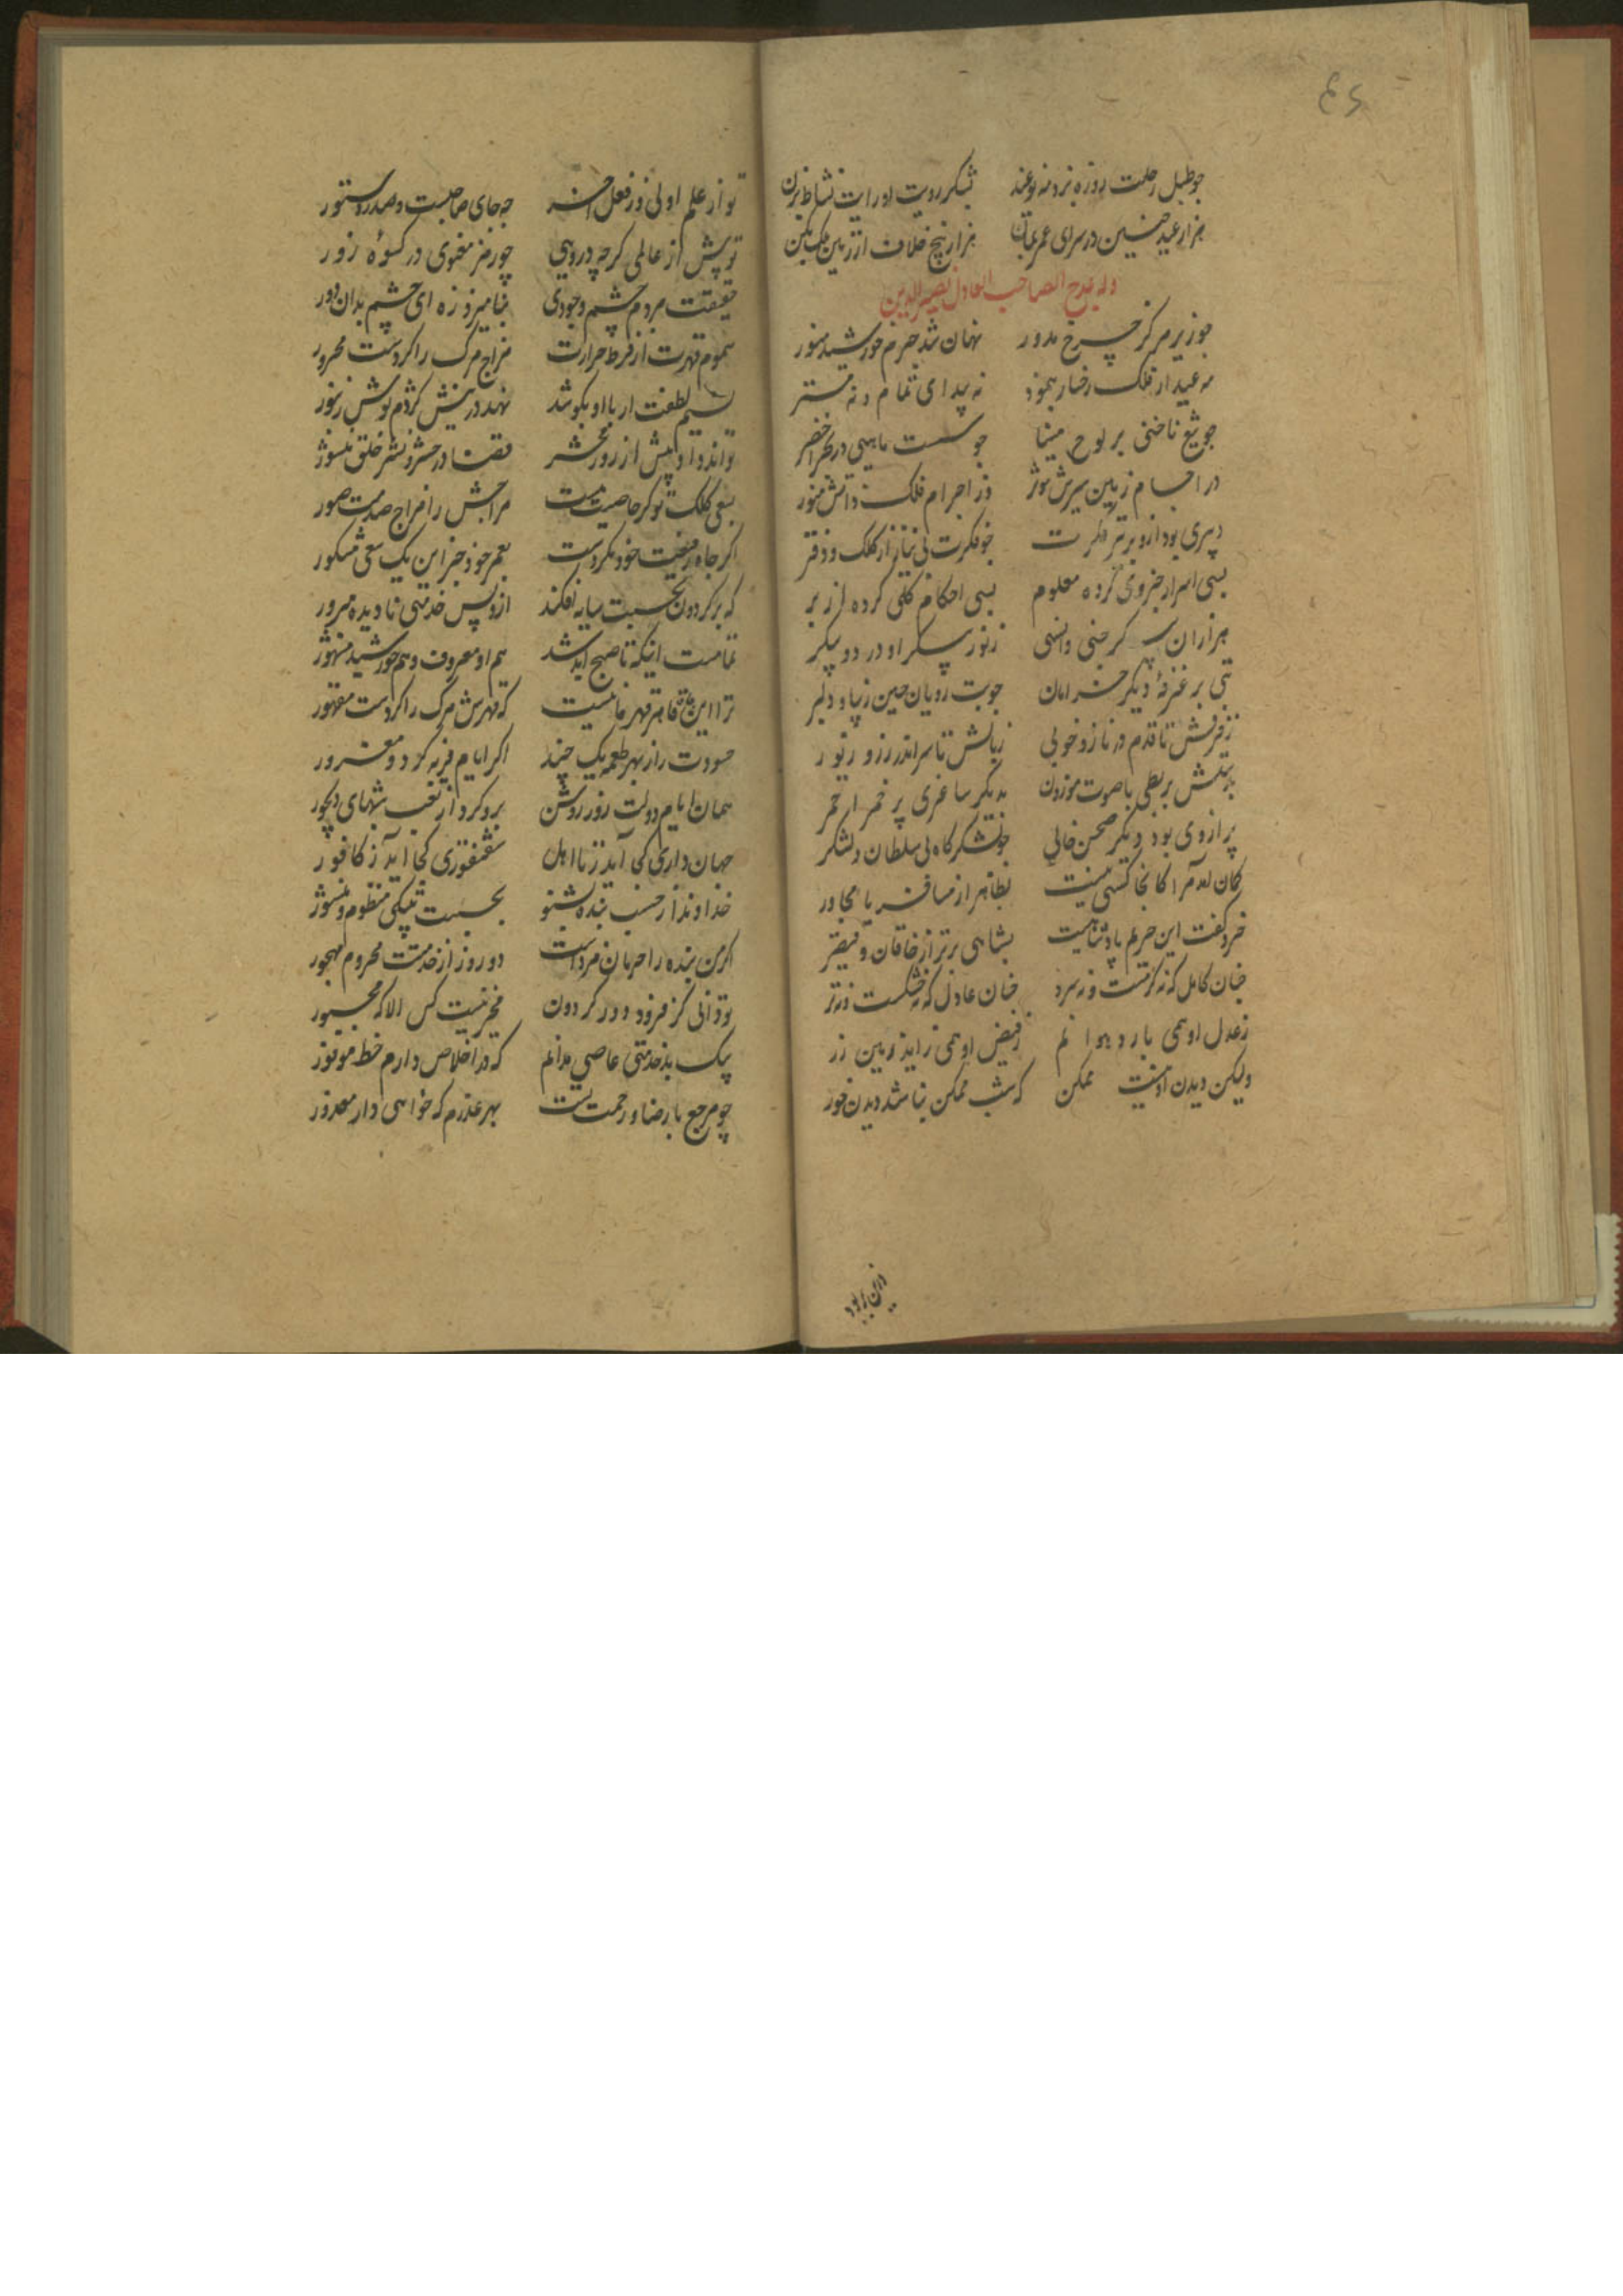 ۶۲
چو طبل رحلت روزه بزد مه نو عید بشکر رویت او رایت نشاط بزن
هزار عید چنین در سرای عمر بمان هزار بیخ خلاف از زمین ملک بکن
وله یمدح الصاحب العادل نصیرالدین
چو زیر مرکز چرخ مدور نهان شد جرم خورشید منور
مه عید از فلک رخسار بنمود نه پیدای تمام و نه مستر
چو تیغ ناخنی بر لوح مینا چو شست ماهیی در بحر اخضر
در اجسام زمین سیرش موثر وز اجرام فلک ذاتش منور
دبیری بود ازو برتر بفکرت چو فکرت بی نیاز از کلک و دفتر
بسی اسرار جزوی کرده معلوم بسی احکام کلی کرده از بر
هزاران پیکر جنی و انسی ز نور پیکر او در دو پیکر
بتی بر غرفهٔ دیگر خرامان چو بت رویان چین زیبا و دلبر
ز فرقش تا قدم در ناز و خوبی ز پایش تا سر اندر زر و زیور
بدستش بربطی با صوت موزون بدیگر ساغری پر خمر احمر
پر از وی بود دیگر صحن خالی چو لشکرگاه بی سلطان و لشکر
گمان آمد مرا کانجا کسی نیست بظاهر از مسافر یا مجاور
خرد گفت این حریم پادشاهیست بشاهی برتر از خاقان و قیصر
چنان کامل که نه گرمست و نه سرد چنان عادل که نه خشکست و نه تر
ز عدل او همی بارد هوا نم ز فیض او همی زاید زمین زر
ولیکن دیدن او نیست ممکن که شب ممکن نباشد دیدن خور
تو از علم اولی وز فعل آخر چه جای صاحبست و صدر و دستور
تو بیش از عالمی گرچه درویی چو رمز معنوی در کسوهٔ زور
حقیقت مردم چشم وجودی بنامیزد زه ای چشم بدان دور
سموم قهرت از فرط حرارت مزاج مرگ را کردست محرور
نسیم لطفت ار با او بکوشد نهد در نیش کژدم نوش زنبور
قضا در حشر و نشر خلق منشور
بسعی کلک تو کز خاصیت هست مزاجش را مزاج صدمت صور
اگر جاه رفیعت خود نکردست بعمر خود جز این یک سعی مشکور
که بر گردون بحسبت سایه افکند ازو بس خدمتی نادیده مبرور
تمامست اینکه تا صبح ابد شد هم او معروف و هم خورشید مشهور
ترا این جاه قاهر قهر خاصیت که قهرش مرگ را کردست مقهور
حسودت را ز بهر طعمه یک چند اگر ایام فربه کرد و مغرور
همان ایام دولت روز روشن برو کرد از تعب شبهای دیجور
جهان داری کی آید زنا اهل سقنقوری کجا آید ز کافور
خداوندا ز حسب بنده بشنو بحسبت بیتکی منظوم و منثور
گر من بنده را حرمان فرو داشت دو روز از خدمتت محروم و مهجور
تو دانی کز فرود دور گردون مخیر نیست کس الا که مجبور
بیک بد خدمتی عاصی مدانم که در اخلاص دارم خط موفور
چو مرجع با رضا و رحمت تست بهر عذرم که خواهی دار معذور